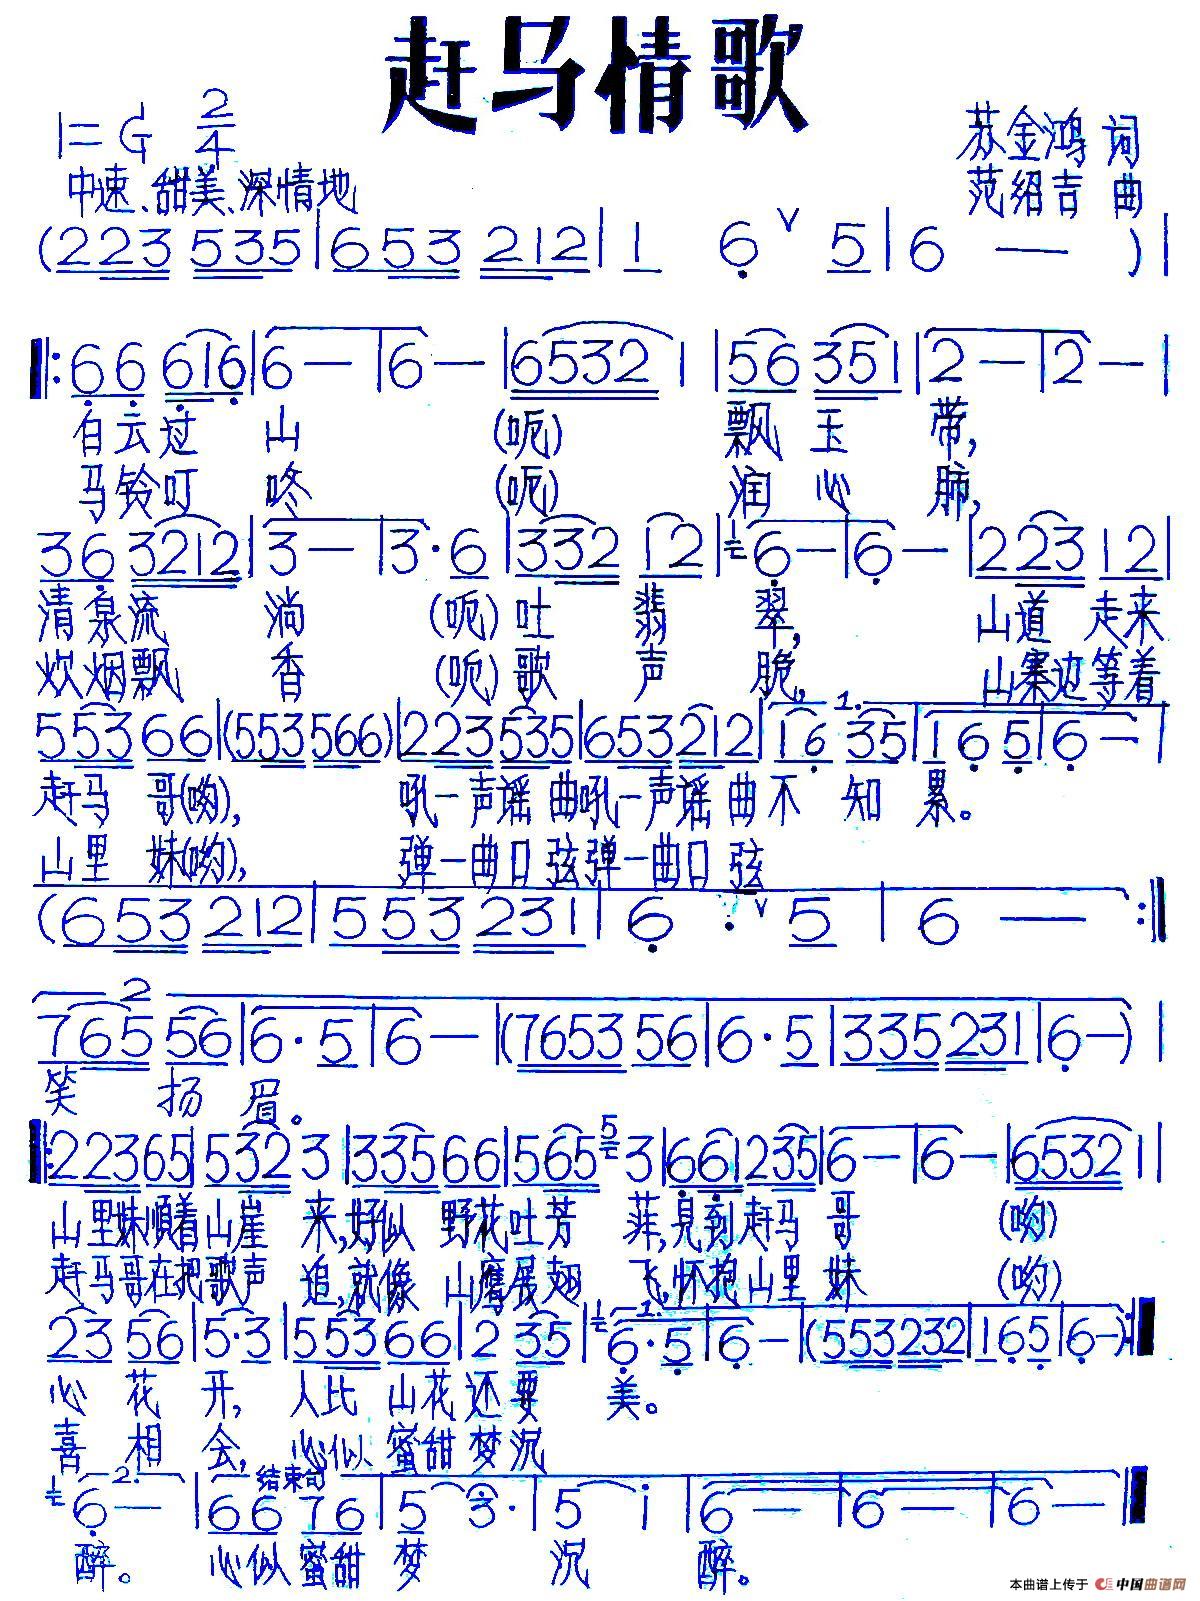 赶马情歌
1=G 2/4
苏金鸿 词
中速、甜美、深情地
范绍吉 曲
(223 535 | 653 212 | 1 6 ∨ 5 | 6 — ) |
‖: 66 616 | 6 — | 6 — | 6532 1 | 56 351 | 2 — | 2 — |
白云过 山 (呃) 飘 玉 带,
马铃叮 咚 (呃) 润 心 肺,
36 3212 | 3 — | 3 · 6 | 332 12 | 6 — | 6 — | 223 12 |
清泉流 淌 (呃)吐 翡 翠, 山道 走来
炊烟飘 香 (呃)歌 声 脆, 山寨边等着
553 66 | (553 566) | 223 535 | 653 212 | 1.
16 35 | 1 6 5 | 6 — |
赶马 哥(哟), 吼一声谣 曲吼一声谣 曲 不 知 累。
山里 妹(哟), 弹一曲口 弦弹一曲口 弦
(653 212 | 553 231 | 6 ∨ 5 | 6 — :‖
2
765 56 | 6 · 5 | 6 — | (7653 56 | 6 · 5 | 335 231 | 6 —) |
笑 扬 眉。
‖: 223 65 | 532 3 | 335 66 | 565 5 3 | 661 235 | 6 — | 6 — | 6532 1 |
山里妹順着山崖 来,好似 野花吐芳 菲,見到赶马 哥 (哟)
赶马哥在把歌声 追,就像 山鹰展翅 飞,怀抱山里 妹 (哟)
23 56 | 5·3 | 553 66 | 2 35 | 1.
6 · 5 | 6 — | (553 232 | 1 65 | 6 —) :‖
心 花 开, 人比 山花还要 美。
喜 相 会, 心似 蜜甜梦沉
2. 结束句
6 — | 66 76 | 5 3 · | 5 i | 6 — | 6 — | 6 — ‖
醉。 心似 蜜甜 梦 沉 醉。
本曲谱上传于 中国曲谱网